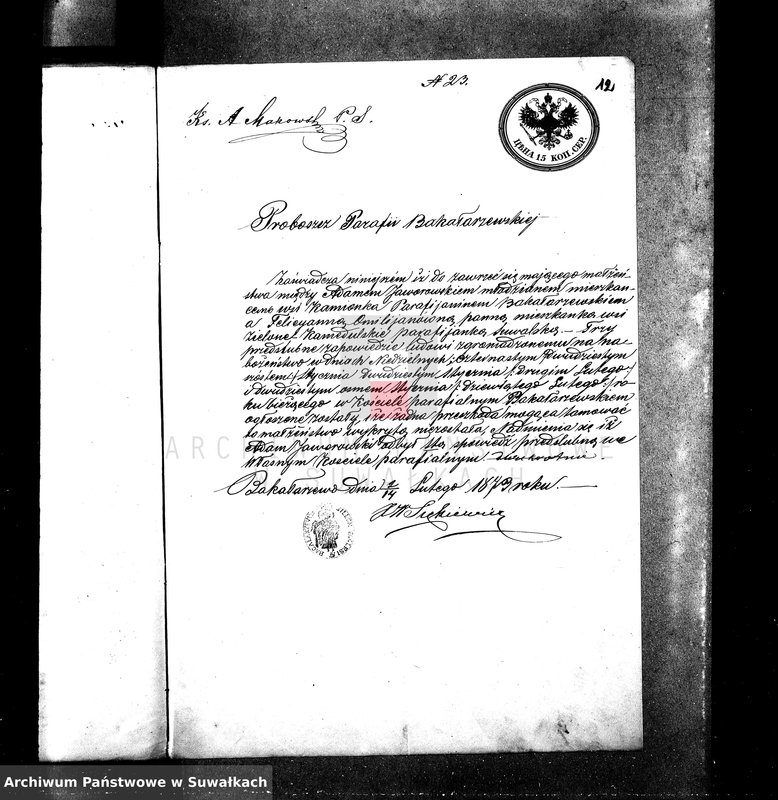 N 23.
12
Ks. A Makowsk P. S.
ЦѢНА 15 КОП. СЕР.
Proboszcz Parafii Bakałarzewskiej
Zaświadcza niniejszém iż do zawrzeć się mającego małżeń-
stwa między Adamem Jaworowskiem młodzianem mieszkań-
cem wsi Kamionka Parafijaninem Bakałarzewskiem
a Felicyanną panną mieszkanką wsi
Zielone Kamedulskie parafijanką Suwalską — Trzy
przedślubne zapowiedzie ludowi zgromadzonemu na na-
bożeństwo w dniach Niedzielnych: Czternastym /: dwudziestym
szóstem :/ Stycznia dwudziestym Stycznia /: drugim Lutego :/
i dwudziestym osmem Stycznia /: dziewiątego Lutego :/ ro-
ku bieżącego w Kościele parafialnym Bakałarzewskiem
ogłoszone zostały, i że żadna przeszkoda mogąca tamować
to małżeństwo wykrytą niezostała. Nadmienia się iż
Adam Jaworowski odbył spowiedź przedślubną we
Własnym Kościele parafialnym dwukrotnie
Bakałarzewo dnia 2/14 Lutego 1873 roku. —
ARCHIWUM PAŃSTWOWE
W SUWAŁKACH
Archiwum Państwowe w Suwałkach